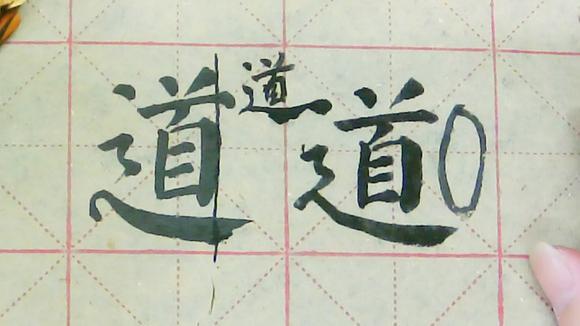 道道道